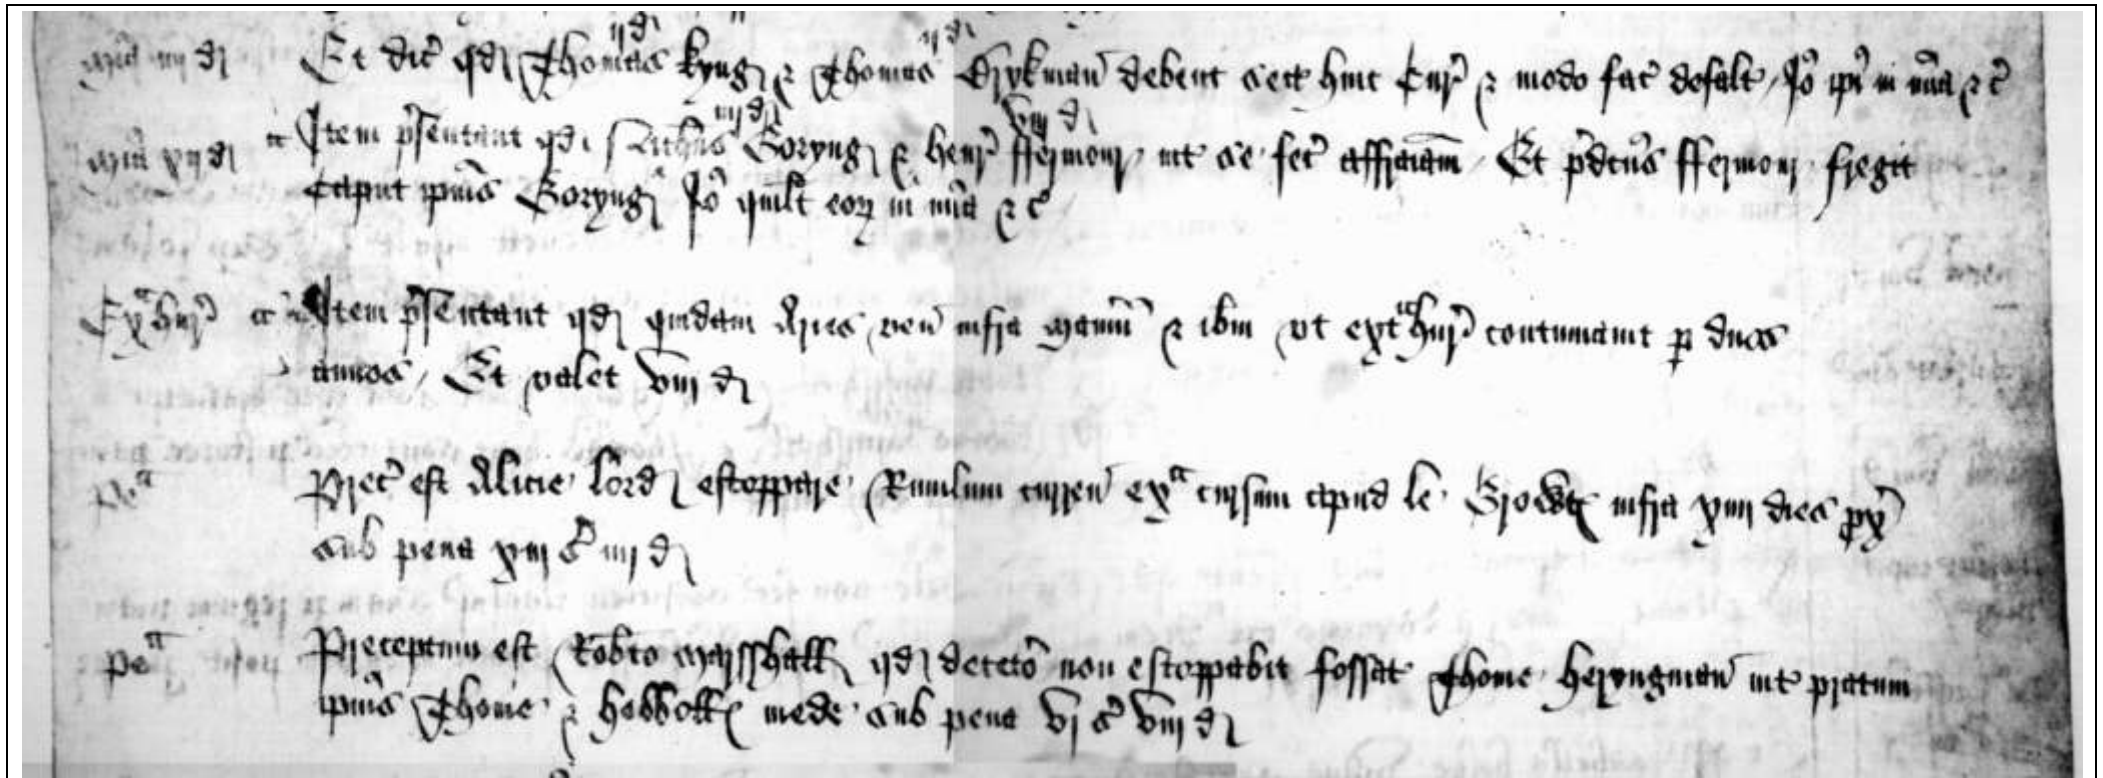 ijd ijd
mia iiijd Et dic qd Thomas kyng & Thomas Brykman debent sect huic Cur & modo fac defalt Io ipi in mia &c
iiijd viijd
mia xijd Item psentant qd Goryng & henr ffermour int se fec affraiam Et pdcus ffermour fregit
caput ipius Goryng Io quilt eor in mia &c
Exahur Item psentant qd quidam Aries ven infra maniu & ibm vt extahur continuauit p duos
annos Et valet viij d
pea Prec est Alicie lord estoppare Riuulum curren exa cursum apud le infra xiiij dies px
sub pena xiij s iiij d
pea Preceptum est Robto Marsshall qd deceto non estoppabit fossat Thome heryngman int pratum
ipius Thome & mede sub pena vj s viij d